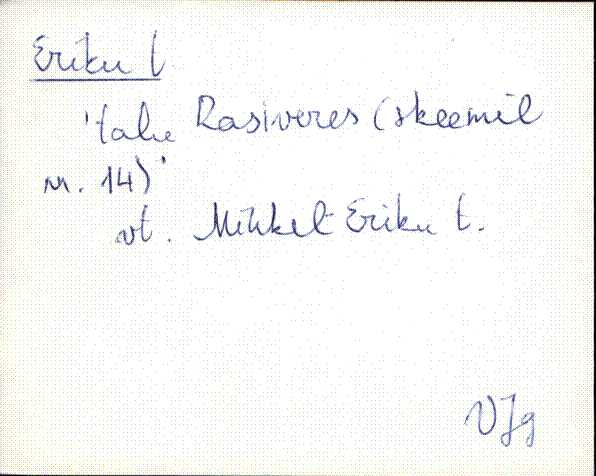 Eriku t.
'talu Rasiveres (skeemil
n. 14)'
vt. Mihkel-Eriku t.
VJg